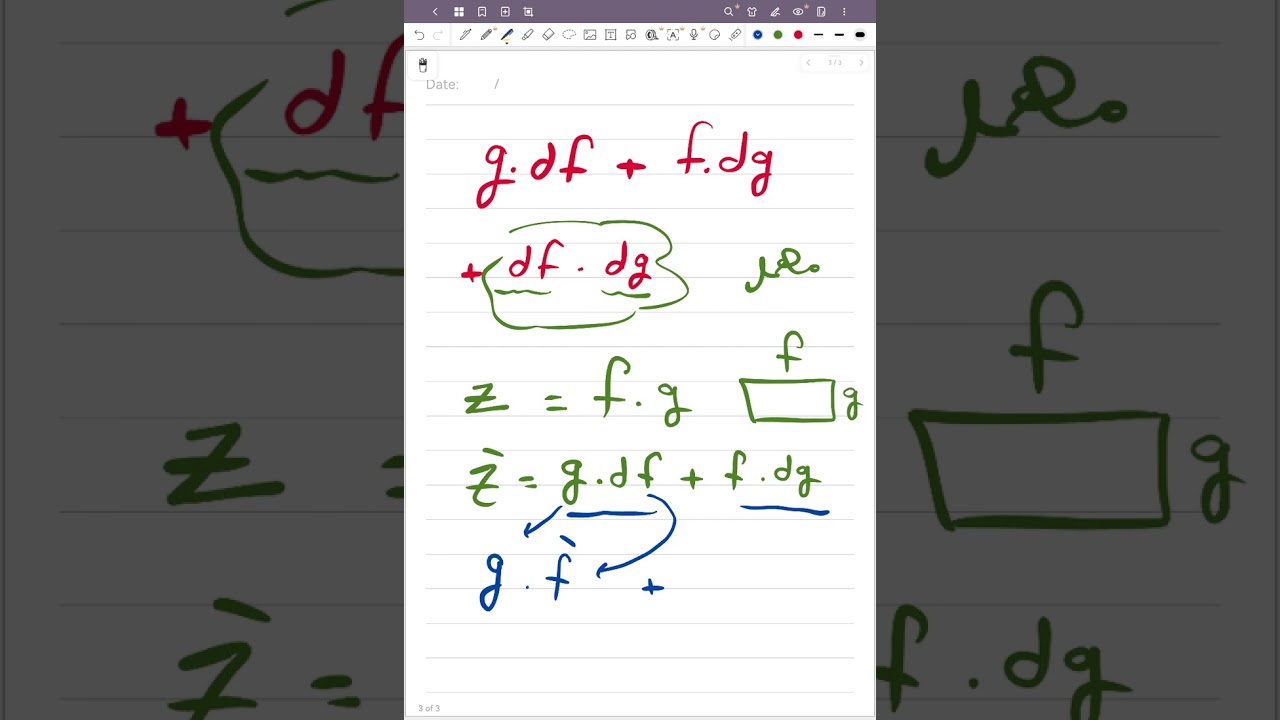 3 / 3
Date: /
g . df + f . dg
+ df . dg
f
z = f . g
g
z̀ = g . df + f . dg
g . f̀ +
3 of 3